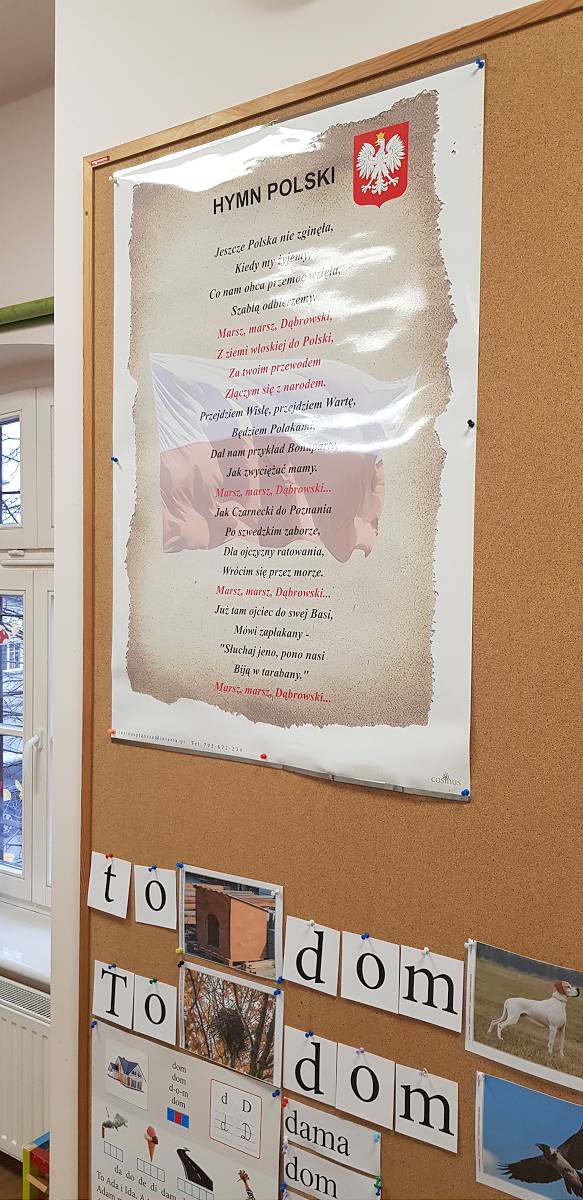 HYMN POLSKI
Jeszcze Polska nie zginęła,
Kiedy my żyjemy,
Co nam obca przemoc wzięła,
Szablą odbierzemy.
Marsz, marsz, Dąbrowski,
Z ziemi włoskiej do Polski,
Za twoim przewodem
Złączym się z narodem.
Przejdziem Wisłę, przejdziem Wartę,
Będziem Polakami,
Dał nam przykład Bonaparte,
Jak zwyciężać mamy.
Marsz, marsz, Dąbrowski...
Jak Czarnecki do Poznania
Po szwedzkim zaborze,
Dla ojczyzny ratowania,
Wrócim się przez morze.
Marsz, marsz, Dąbrowski...
Już tam ojciec do swej Basi,
Mówi zapłakany -
"Słuchaj jeno, pono nasi
Biją w tarabany."
Marsz, marsz, Dąbrowski...
cosinusplansze@interia.pl Tel. 793-672-234
cosinus
to dom
To dom
dom
dom
d-o-m
dom
d D
da do de di
To Ada i Ida.
Adam
dama
dom